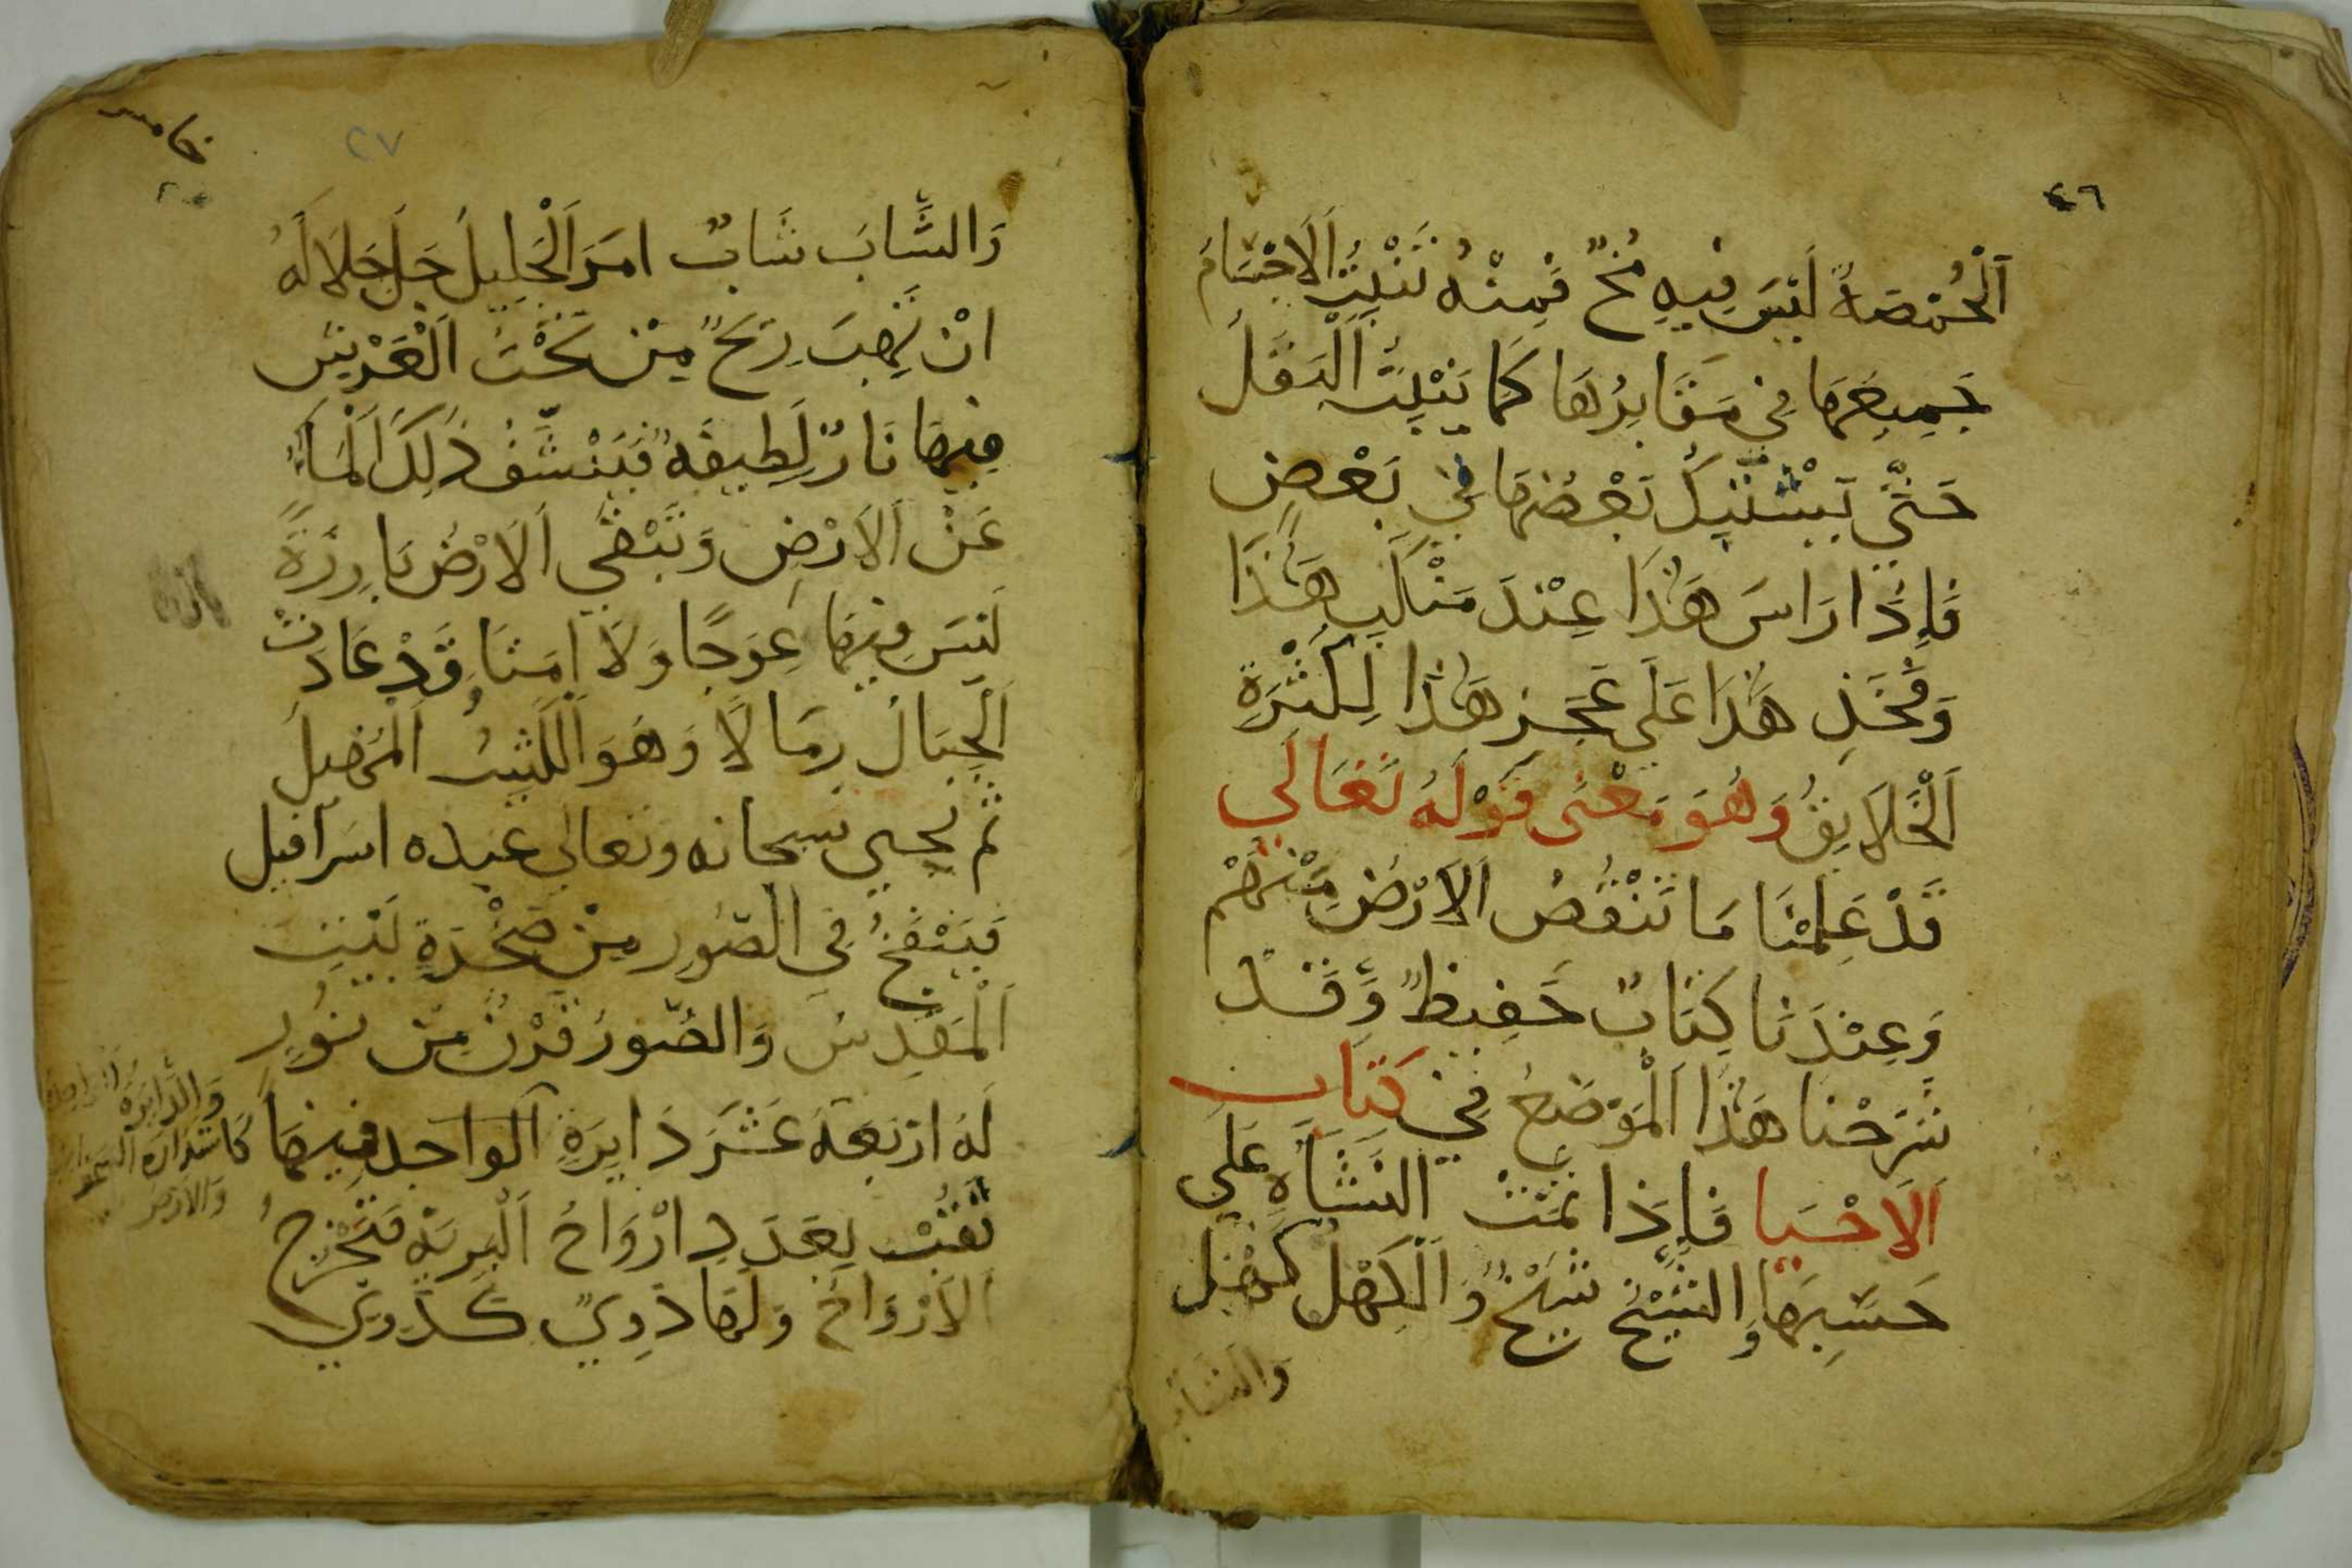 ٤٦
اَلْحُمَّصَةُ لَيْسَ فِيهِ مُخٌّ فَمِنْهُ تَنْبُتُ الْاَجْسَامُ
جَمِيعِهَا فِي مَقَابِرِهَا كَمَا يَنْبُتُ الْبَقْلُ
حَتَّي يَشْتَبِكُ بَعْضُهَا فِي بَعْضٍ
فَاِذَا رَاسَ هَذَا عِنْدَ مَنْكَبِ هَذَا
وَفَخَذِ هَذَا عَلَي عَجَزِ هَذَا لِكَثْرَةِ
اَلْخَلَايِقِ وَهُوَ مَعْنَى قَوْلَهُ تَعَالَي
قَدْ عَلِمْنَا مَا تَنْقُصُ الْاَرْضُ مِنْهُمْ
وَعِنْدَنَا كِتَابٌ حَفِيظٌ وَقَدْ
شَرَحْنَا هَذَا الْمَوْضِعُ فِي كِتَاب
اَلْاِحْيَا فَاِذَا تَمَّتْ النَّشَاَةِ عَلَي
حَسَبِهَا وَالشَّيْخُ شَيْخٌ وَالْكَهْلُ كَهْل
وَالشَّابُ
خامس
٢٧
وَالشَّابَ شَابٌ امَرَ الْجَلِيلُ جَلَّ جَلَالَهُ
انْ تَهِبَ رِيحٌ مِنْ تَحْتَ الْعَرْشِ
فِيهَا نَارٌ لَطِيفَةٌ فَيَنْشِّفُ ذَلِكَ الْمَاءُ
عَنْ الْاَرْضِ وَتَبْقَي الْاَرْضُ بَارِزَةً
لَيْسَ فِيهَا عِوَجًا وَلَا اِمَتَا وَقَدْ عَادَتْ
اَلْجِبَالَ رِمَالًا وَهُوَ الْكَثِيبُ الْمَهِيل
ثم يحيي سبحانه وتعالي عبده اسرافيل
فَيَنْفَخُ فِي الصُّورِ مِنْ صَخْرَةِ بَيْتِ
اَلْمَقْدِسِ وَالصُّورُ قَرْنٌ مِنْ نُورٍ
لَهُ ارْبَعَةَ عَشَرَ دَايِرَةِ الْوَاحِدِ فِيهَا
وَالدَّايِرَة
كَاسْتِدَارَة السَّمَوَات
وَالارْض
ثُقْبٌ بِعَدَدِ ارْوَاحُ الْبَرِيَّةِ فَتَخْرُجُ
الْاَرْوَاحُ وَلَهَا دَوِيٌ كَدَوِيِّ